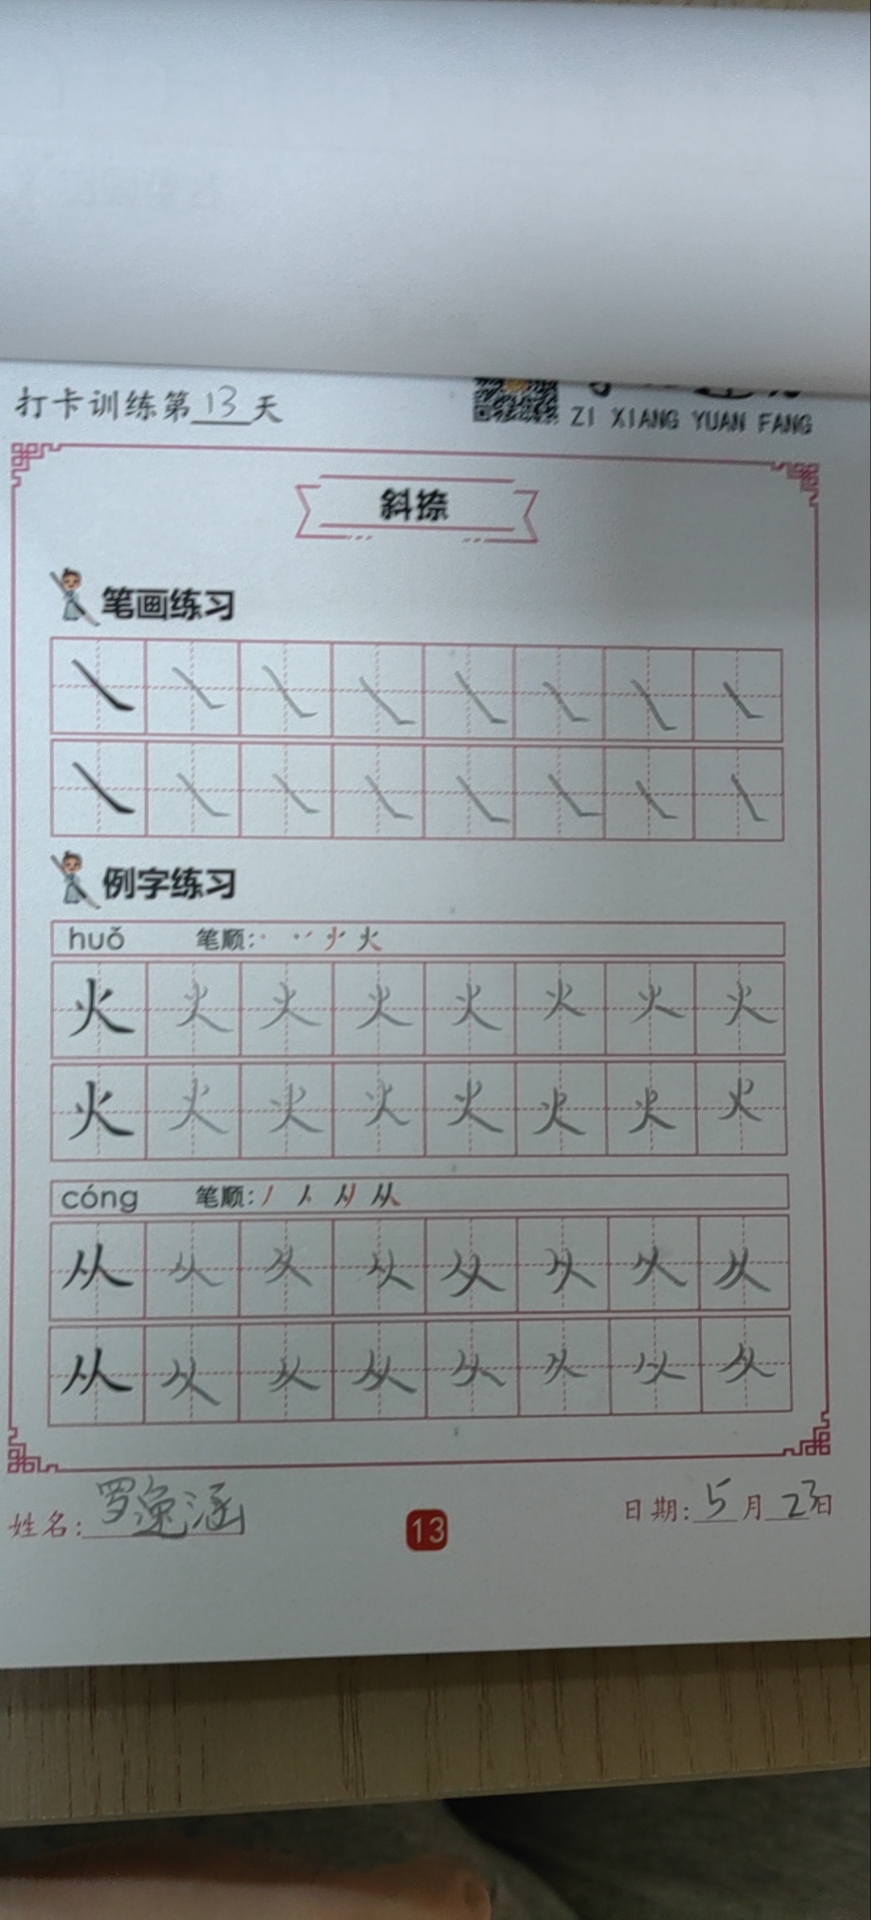 打卡训练第13天
ZI XIANG YUAN FANG
斜捺
笔画练习
例字练习
huǒ 笔顺: 火
火 火 火 火 火 火 火 火
火 火 火 火 火 火 火 火
cóng 笔顺: 丿 人 从
从 从 从 从 从 从 从 从
从 从 从 从 从 从 从 从
姓名: 罗逸涵
13
日期: 5月23日